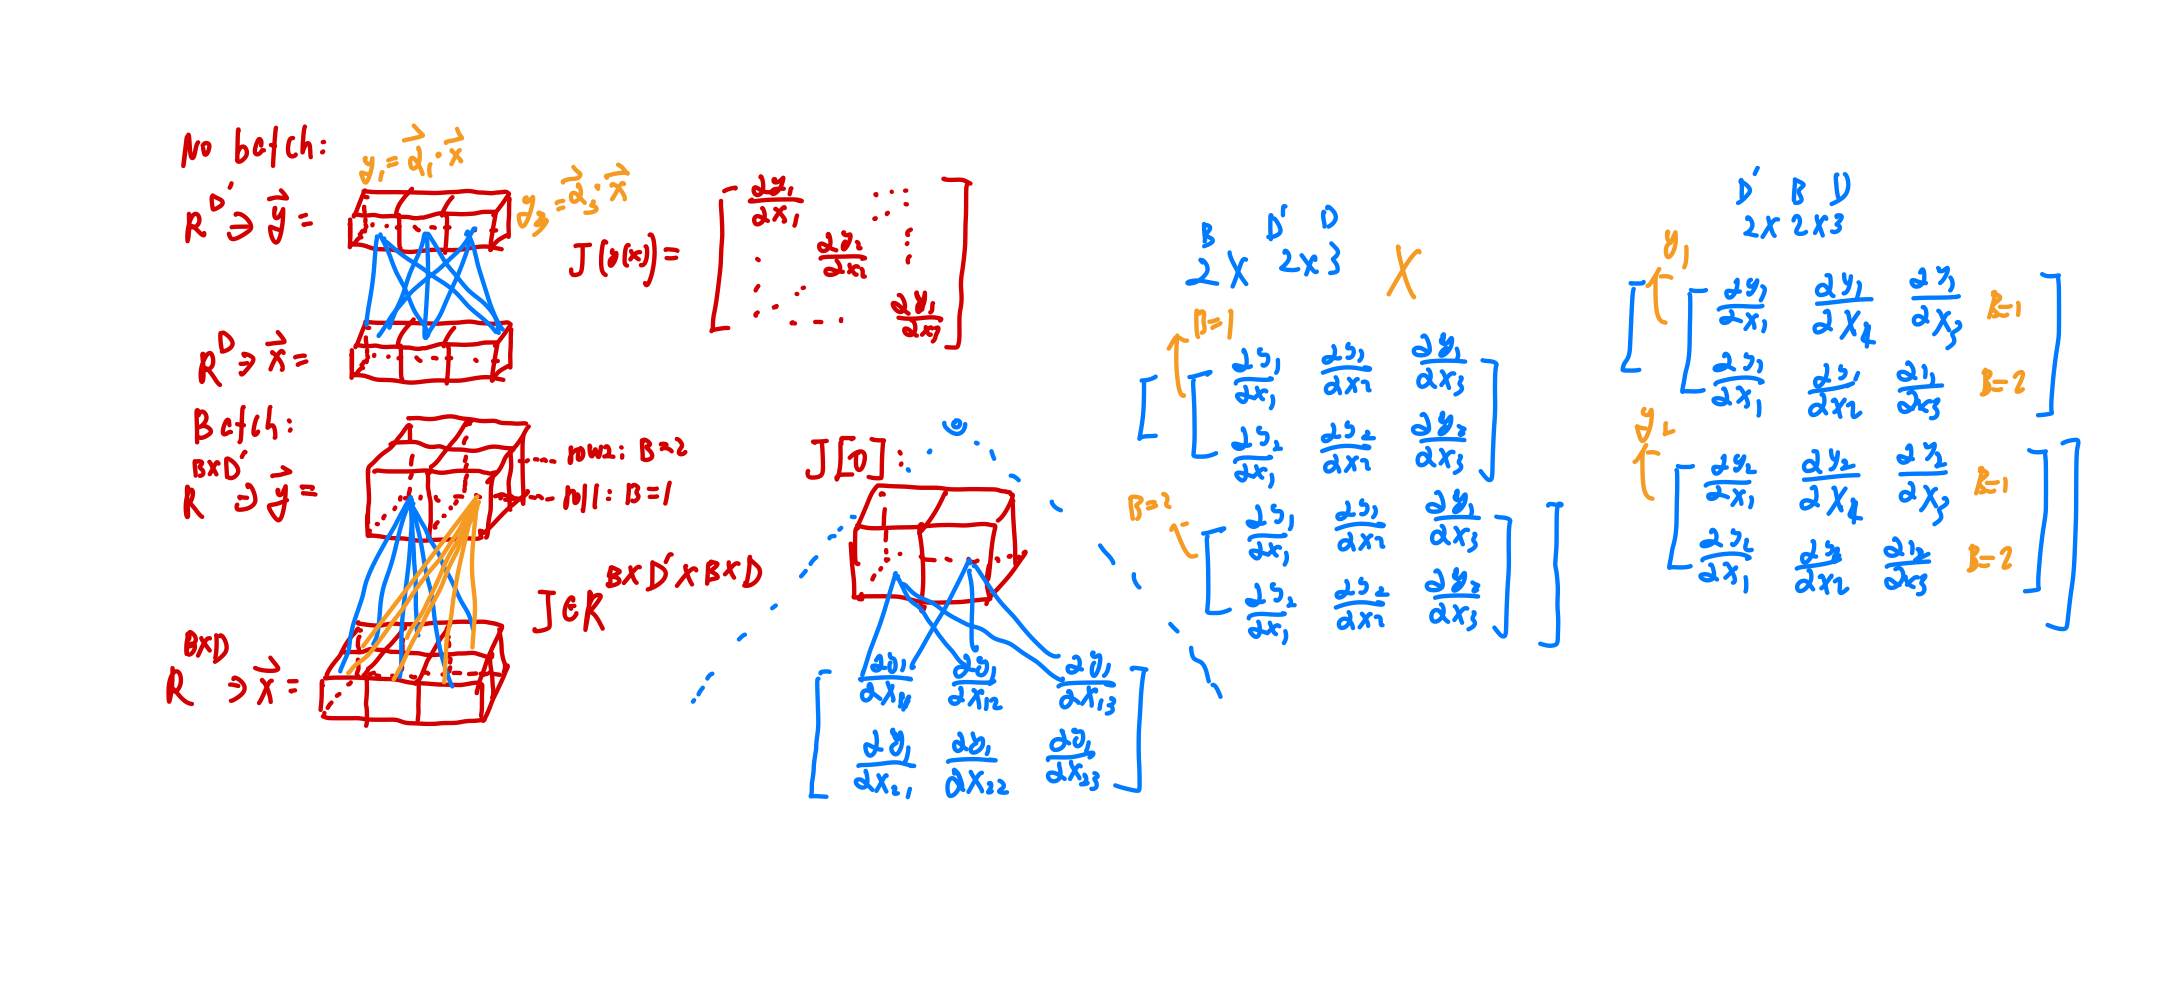 No batch:
y₁ = α⃗₁·x⃗
R^D' ∋ y⃗ =
y₃ = α⃗₃·x⃗
J(y(x)) = [ ∂y₁/∂x₁ ... ∂y₂/∂x₂ ... ∂y₁/∂x₃ ]
R^D ∋ x⃗ =
Batch:
R^{B×D'} ∋ y⃗ =
row2: B=2
row1: B=1
J ∈ R^{B×D'×B×D}
R^{B×D} ∋ x⃗ =
J[0]:
∂y₁/∂x₁₁ ∂y₁/∂x₁₂ ∂y₁/∂x₁₃
∂y₁/∂x₂₁ ∂y₁/∂x₂₂ ∂y₁/∂x₂₃
B D' D
2 × 2×3 X
B=1
∂y₁/∂x₁ ∂y₁/∂x₂ ∂y₁/∂x₃
∂y₂/∂x₁ ∂y₂/∂x₂ ∂y₂/∂x₃
B=2
∂y₁/∂x₁ ∂y₁/∂x₂ ∂y₁/∂x₃
∂y₂/∂x₁ ∂y₂/∂x₂ ∂y₂/∂x₃
D' B D
2×2×3
y₁
∂y₁/∂x₁ ∂y₁/∂x₂ ∂y₁/∂x₃ B=1
∂y₁/∂x₁ ∂y₁/∂x₂ ∂y₁/∂x₃ B=2
y₂
∂y₂/∂x₁ ∂y₂/∂x₂ ∂y₂/∂x₃ B=1
∂y₂/∂x₁ ∂y₂/∂x₂ ∂y₂/∂x₃ B=2